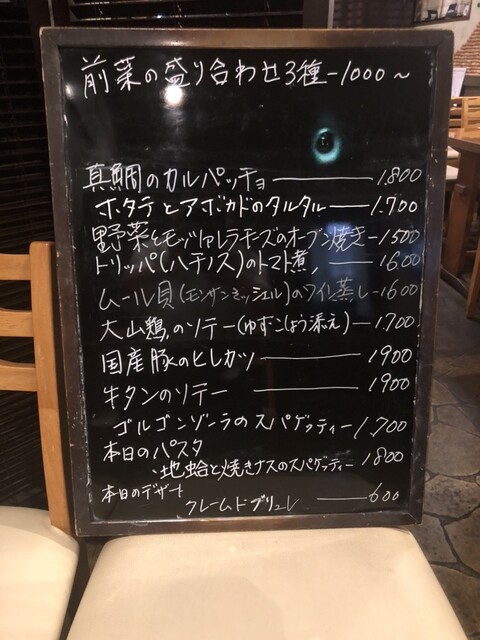 前菜の盛り合わせ3種-1000~
真鯛のカルパッチョ ― 1.800
ホタテとアボカドのタルタル ― 1.700
野菜とモッツァレラチーズのオーブン焼き-1500
トリッパ(ハチノス)のトマト煮 ― 1600
ムール貝(モンサンミッシェル)のワイン蒸し-1600
大山鶏のソテー(ゆずこしょう添え) ― 1.700
国産豚のヒレカツ ― 1900
牛タンのソテー ― 1900
ゴルゴンゾーラのスパゲッティー 1.700
本日のパスタ
・地蛤と焼きナスのスパゲッティー 1800
本日のデザート
クレームドブリュレ ― 600